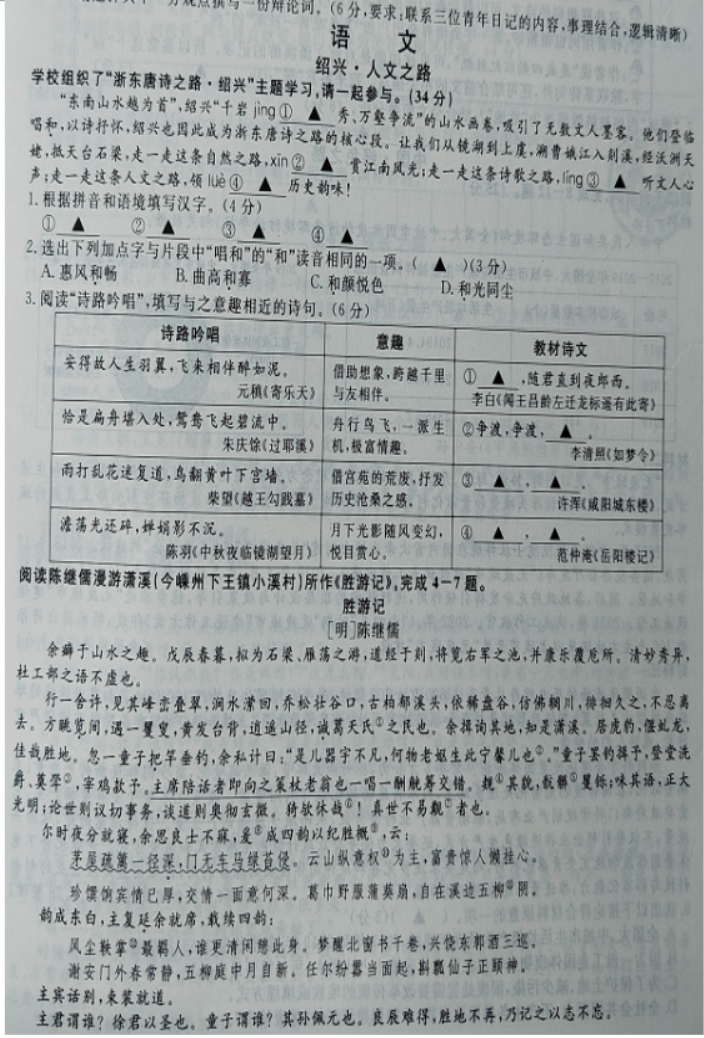 分观点撰写一份辩论词。(6分,要求:联系三位青年日记的内容,事理结合,逻辑清晰)
语 文
绍兴·人文之路
学校组织了“浙东唐诗之路·绍兴”主题学习,请一起参与。(34分)
“东南山水越为首”,绍兴“千岩 jìng ① ▲ 秀、万壑争流”的山水画卷,吸引了无数文人墨客。他们登临
唱和,以诗抒怀,绍兴也因此成为浙东唐诗之路的核心段。让我们从镜湖到上虞,溯曹娥江入剡溪,经沃洲天
姥,抵天台石梁,走一走这条自然之路,xīn ② ▲ 赏江南风光;走一走这条诗歌之路,líng ③ ▲ 听文人心
声;走一走这条人文之路,领 lüè ④ ▲ 历史韵味!
1.根据拼音和语境填写汉字。(4分)
① ▲ ② ▲ ③ ▲ ④ ▲
2.选出下列加点字与片段中“唱和”的“和”读音相同的一项。( ▲ )(3分)
A.惠风和畅 B.曲高和寡 C.和颜悦色 D.和光同尘
3.阅读“诗路吟唱”,填写与之意趣相近的诗句。(6分)
诗路吟唱 意趣 教材诗文
安得故人生羽翼,飞来相伴醉如泥。
元稹《寄乐天》
借助想象,跨越千里
与友相伴。
① ▲ ,随君直到夜郎西。
李白《闻王昌龄左迁龙标遥有此寄》
恰是扁舟堪入处,鸳鸯飞起碧流中。
朱庆馀《过耶溪》
舟行鸟飞,一派生
机,极富情趣。
②争渡,争渡, ▲ 。
李清照《如梦令》
雨打乱花迷复道,鸟翻黄叶下宫墙。
柴望《越王勾践墓》
借宫苑的荒废,抒发
历史沧桑之感。
③ ▲ , ▲ 。
许浑《咸阳城东楼》
澹荡光还碎,婵娟影不沉。
陈羽《中秋夜临镜湖望月》
月下光影随风变幻,
悦目赏心。
④ ▲ , ▲ 。
范仲淹《岳阳楼记》
阅读陈继儒漫游潇溪(今嵊州下王镇小溪村)所作《胜游记》,完成4－7题。
胜游记
[明]陈继儒
余癖于山水之趣。戊辰春暮,拟为石梁、雁荡之游,道经于剡,将览右军之池,并康乐覆卮所。清妙秀异,
杜工部之语不虚也。
行一舍许,见其峰峦叠翠,涧水潆回,乔松壮谷口,古柏郁溪头,依稀盘谷,仿佛辋川,徘徊久之,不忍离
去。方眺览间,遇一矍叟,黄发台背,逍遥山径,诚葛天氏①之民也。余揖询其地,知是潇溪。居虎豹,偃虬龙,
佳哉胜地。忽一童子把竿垂钓,余私计曰:“是儿器宇不凡,何物老妪生此宁馨儿也②。”童子罢钓揖予,登堂洗
爵、奠斝③,宰鸡款予。主席陪话者即向之策杖老翁也一唱一酬觥筹交错。觌④其貌,骯髒⑤矍铄;味其语,正大
光明;论世则议切事务,谈道则奥彻玄微。猗欤休哉⑥!真世不易觏⑦者也。
尔时夜分就寝,余思良士不寐,爰⑧成四韵以纪胜概⑨,云:
茅屋疏篱一径深,门无车马绿苔侵。云山纵意权⑩为主,富贵惊人懒挂心。
珍馔饷宾情已厚,交情一面意何深。葛巾野服蒲葵扇,自在溪边五柳⑪阴。
韵成东白,主复延余就席,载续四韵:
风尘鞅掌⑫最羁人,谁更清闲憩此身。梦醒北窗书千卷,兴饶东郭酒三巡。
谢安门外春常静,五柳庭中月自新。任尔纷嚣当面起,斟瓢仙子正颐神。
主宾话别,束装就道。
主君谓谁?徐君以圣也。童子谓谁?其孙佩元也。良辰难得,胜地不再,乃记之以志不忘。